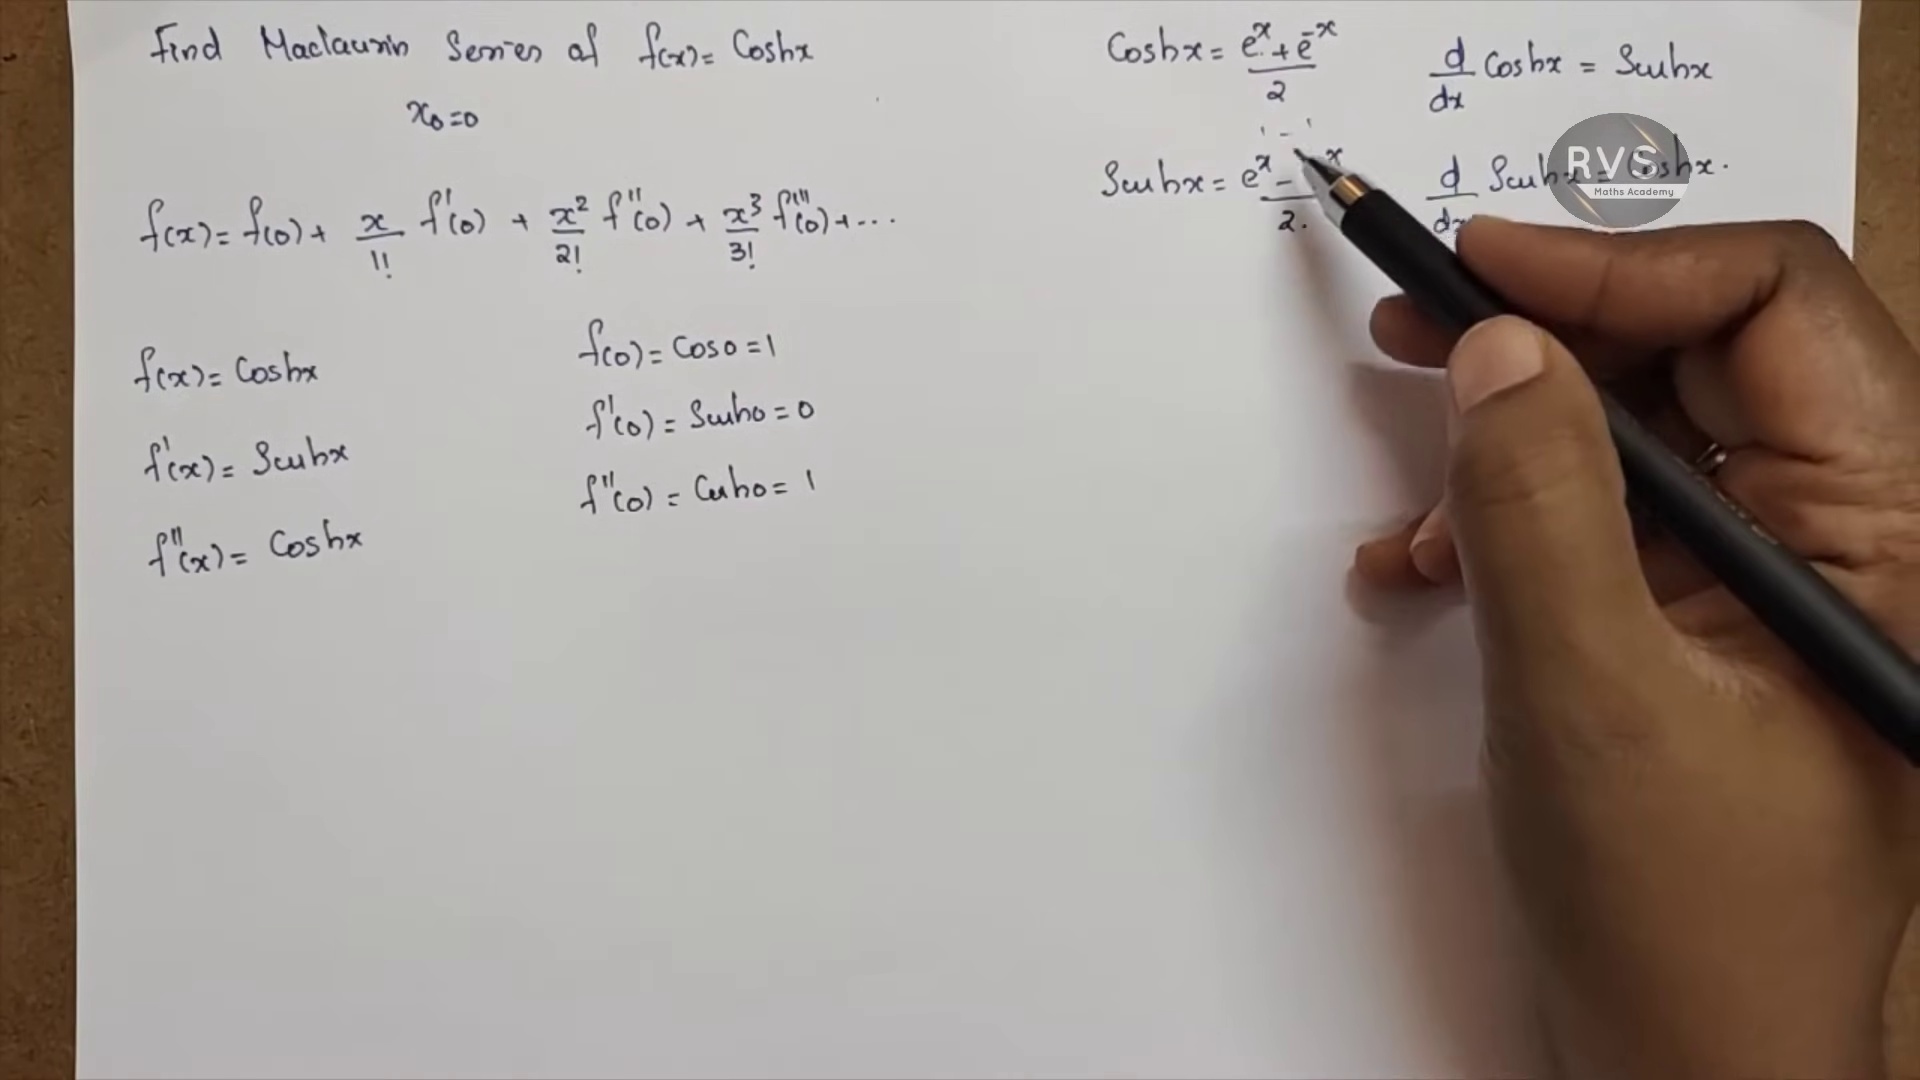 Find Maclaurin Series of f(x) = Coshx
x₀=0
f(x) = f(0) + x/1! f'(0) + x²/2! f''(0) + x³/3! f'''(0) + ...
f(x) = Coshx
f'(x) = Sinhx
f''(x) = Coshx
f(0) = Cos0 = 1
f'(0) = Sinh0 = 0
f''(0) = Cosh0 = 1
Coshx = e^x + e^-x / 2
1 - 1
Sinhx = e^x - x / 2.
d/dx Coshx = Sinhx
d/dx Sinhx = Coshx.
RVS
Maths Academy